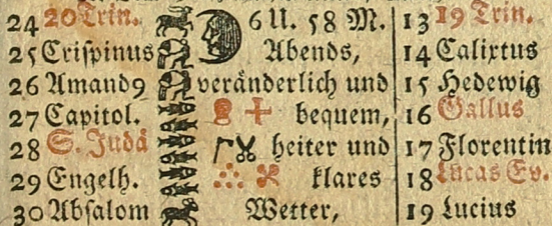 24 20 Trin. 6 U. 58 M. 13 19 Trin.
25 Crispinus Abends, 14 Calixtus
26 Amand9 veränderlich und 15 Hedewig
27 Capitol. bequem, 16 Gallus
28 S. Judä heiter und 17 Florentin
29 Engelh. klares 18 Lucas Ev.
30 Absalom Wetter, 19 Lucius